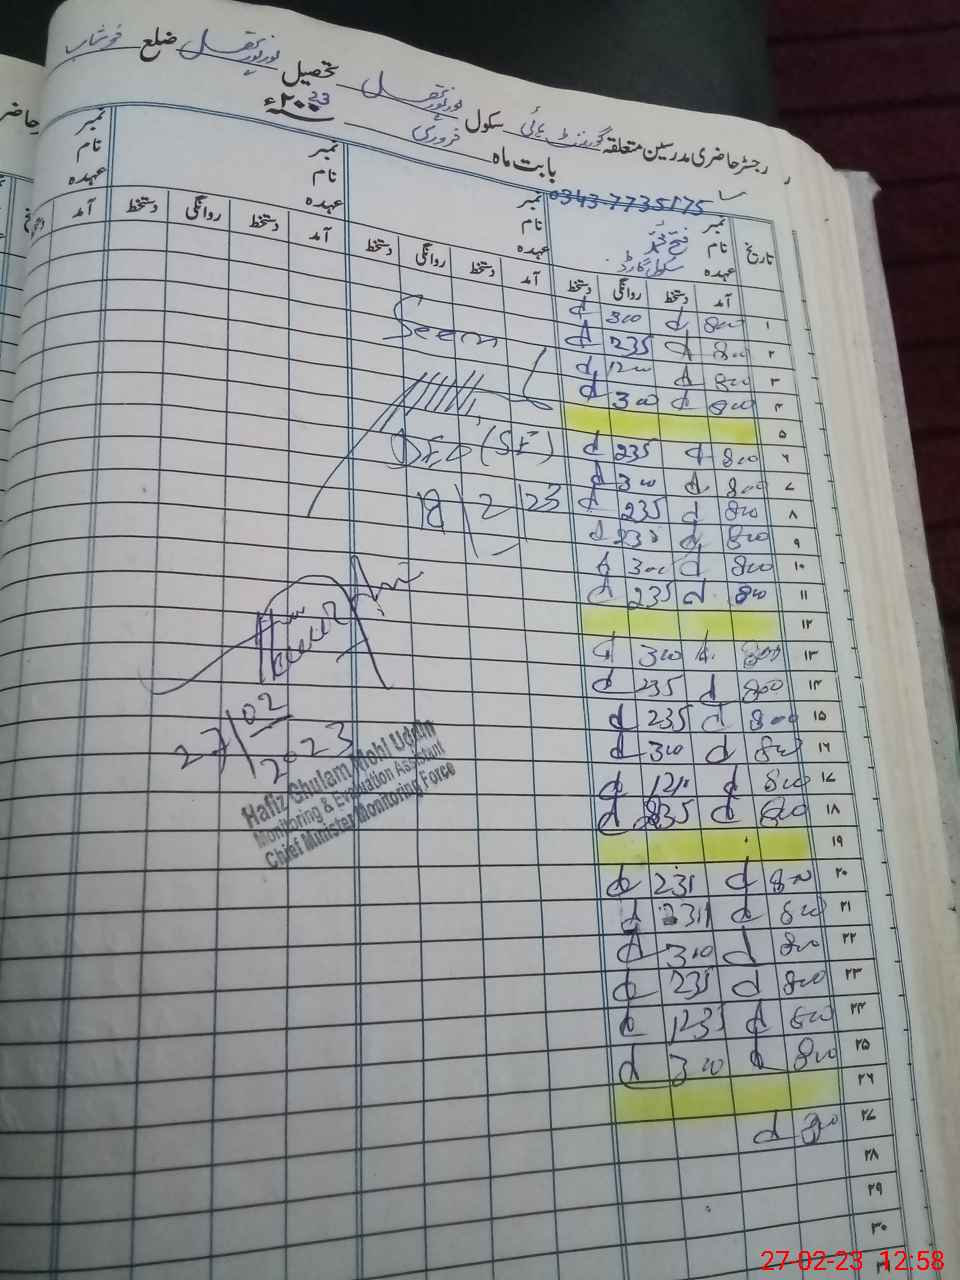 رجسٹر حاضری مدرسین متعلقہ گورنمنٹ ہائی سکول نورپور تھل تحصیل نورپور تھل ضلع خوشاب
بابت ماہ فروری ۲۰۰23ء
0343-7735175
تاریخ نمبر نمبر نمبر نمبر
نام فتح محمد نام نام نام
عہدہ سکول گارڈ عہدہ عہدہ عہدہ
آمد دستخط روانگی دستخط آمد دستخط روانگی دستخط آمد دستخط روانگی دستخط آمد
۱ 800 d 300 d
۲ 800 d 235 d
۳ 800 d 1200 d
۴ 800 d 300 d
۵
۶ 800 d 235 d
۷ 800 d 300 d
۸ 800 d 235 d
۹ 800 d 235 d
۱۰ 800 d 300 d
۱۱ 800 d 235 d
۱۲
۱۳ 800 d 300 d
۱۴ 800 d 235 d
۱۵ 800 d 235 d
۱۶ 800 d 300 d
۱۷ 800 d d
۱۸ 800 d 235 d
۱۹
۲۰ 800 d 231 d
۲۱ 800 d 231 d
۲۲ 800 d 310 d
۲۳ 800 d 235 d
۲۴ 800 d 1233 d
۲۵ 800 d 300 d
۲۶
۲۷ 800 d
۲۸
۲۹
۳۰
۳۱
Seen
DEO (SE)
18/2/23
27/02
2023
Hafiz Ghulam Mohi Uddin
Monitoring & Evaluation Assistant
Chief Minister Monitoring Force
27-02-23 12:58